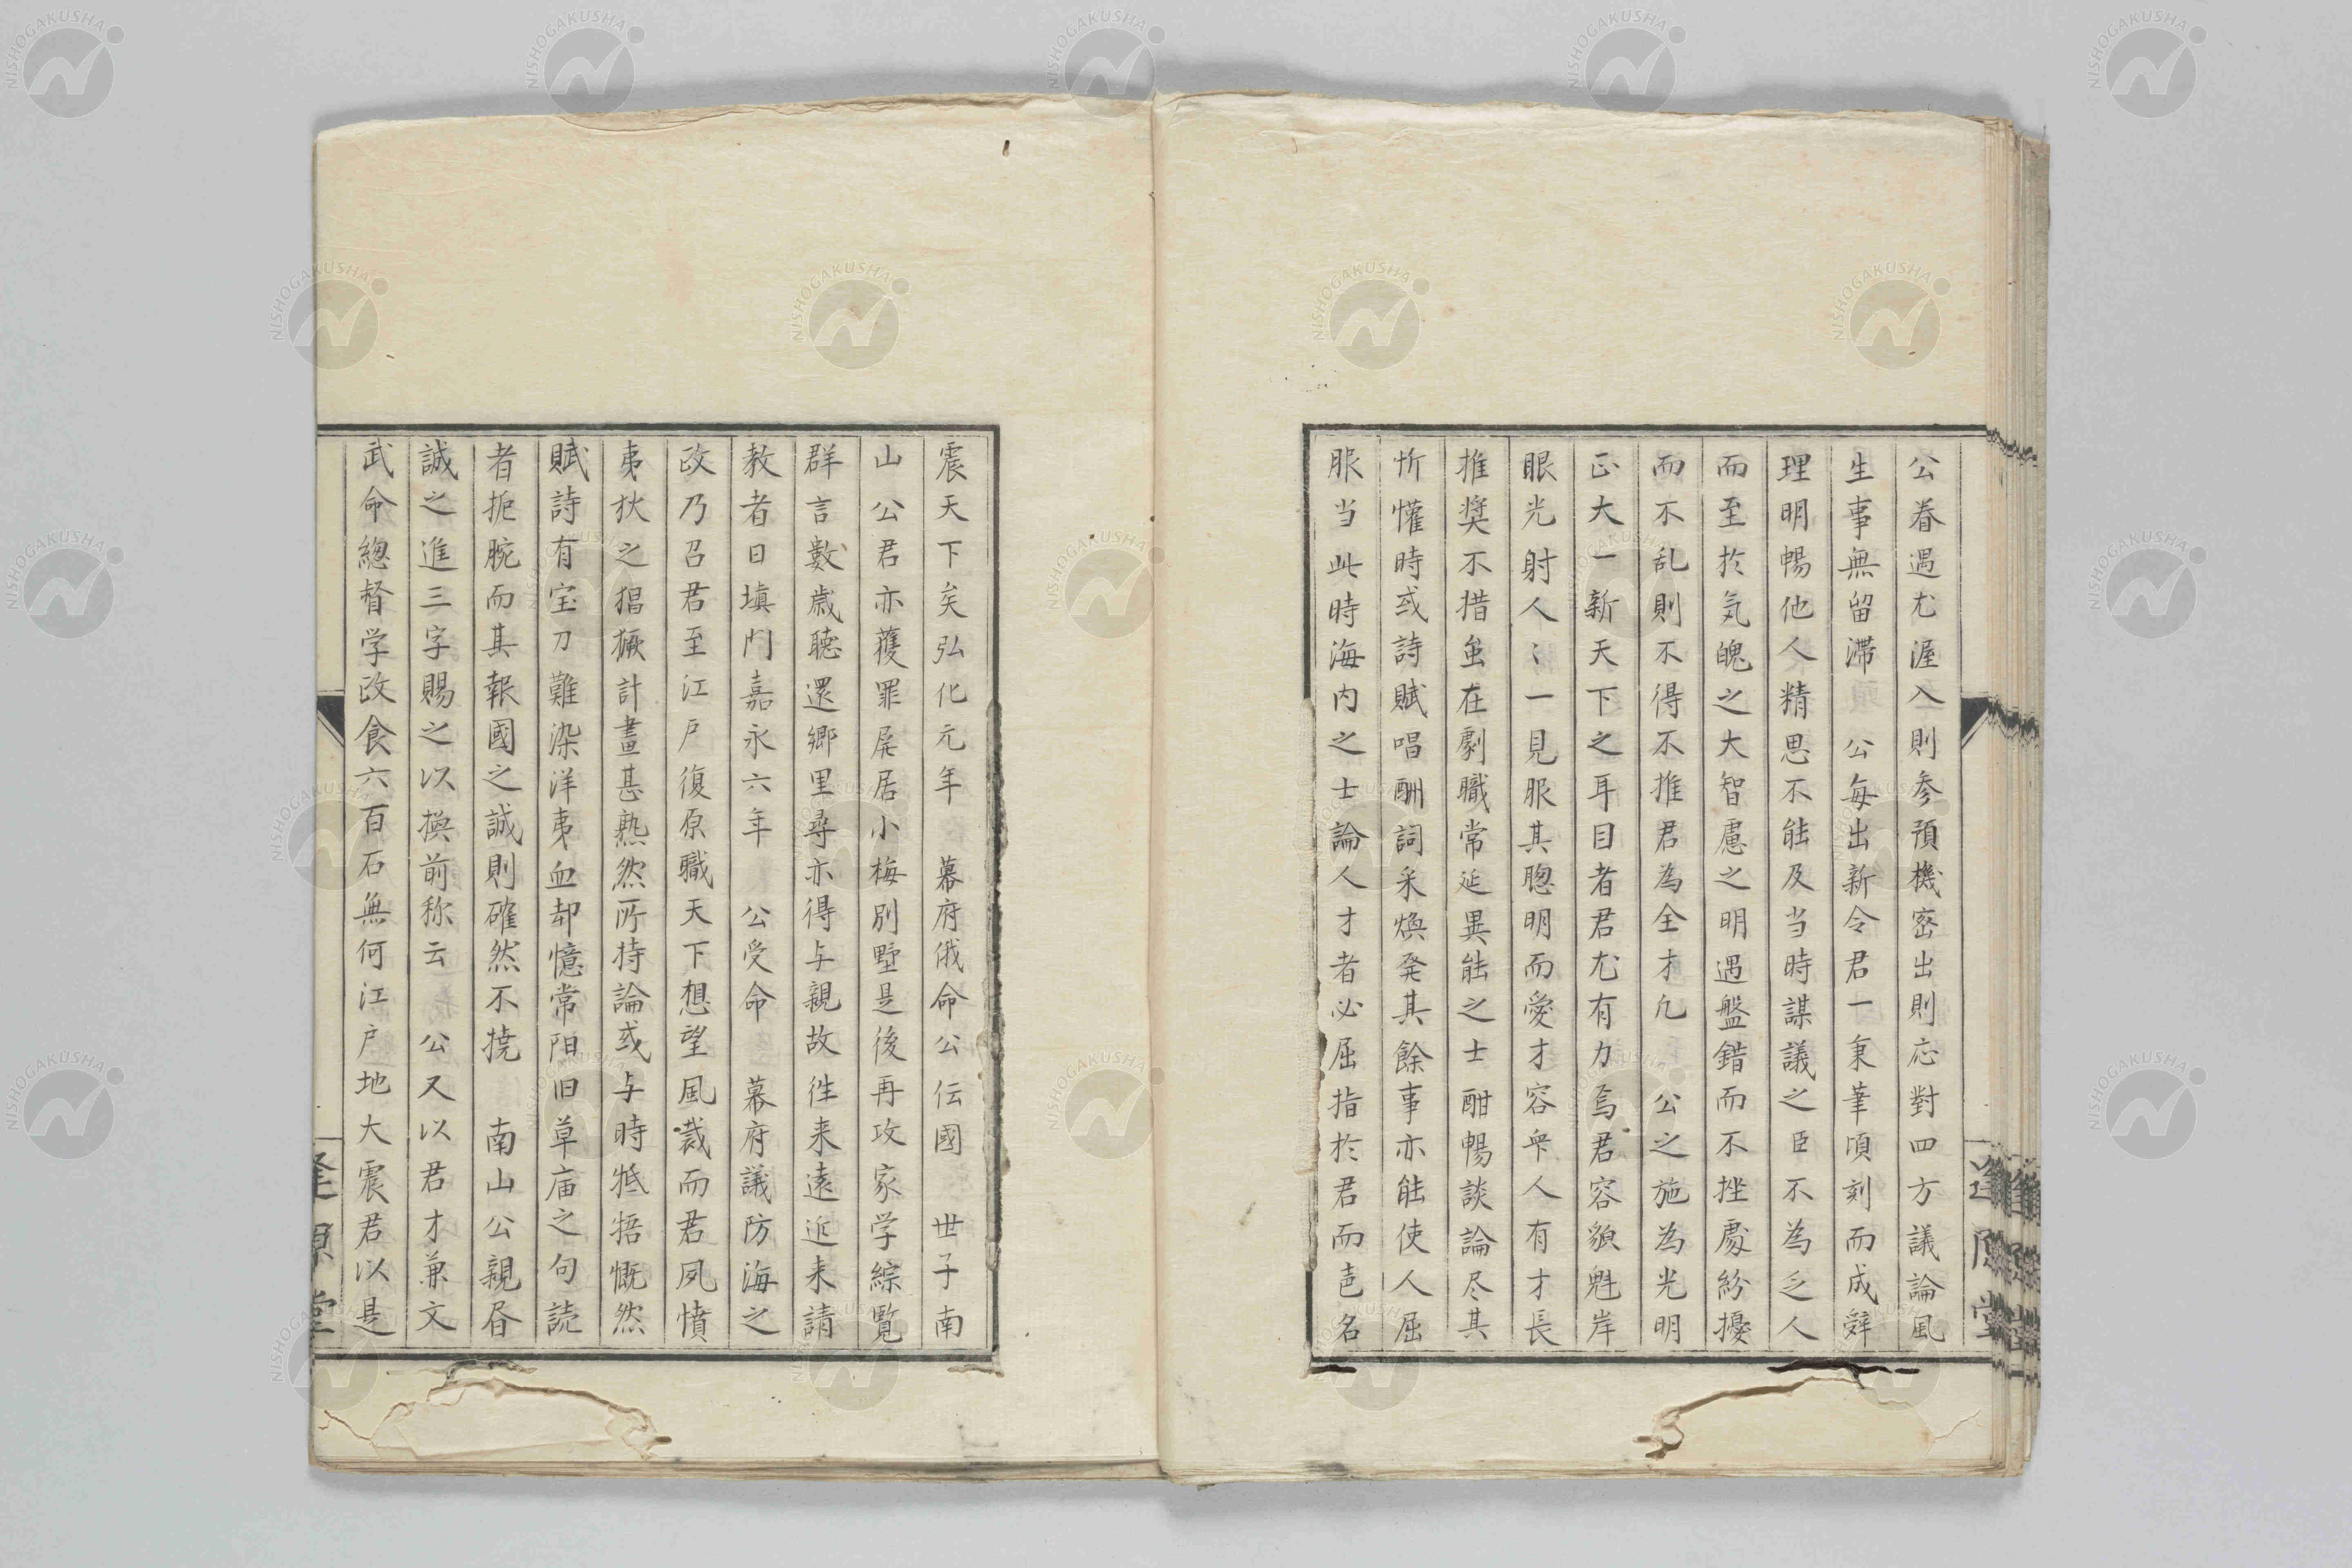 公眷遇尤渥入則参預機密出則応對四方議論風
生事無留滞　公每出新令君一秉筆頃刻而成辞
理明暢他人精思不能及当時謀議之臣不為乏人
而至於気魄之大智慮之明遇盤錯而不挫處紛擾
而不乱則不得不推君為全才凡　公之施為光明
正大一新天下之耳目者君尤有力焉君容貌魁岸
眼光射人〻一見服其聡明而愛才容衆人有才長
推奨不措虽在劇職常延異能之士酣暢談論尽其
忻懽時或詩賦唱酬詞采煥発其餘事亦能使人屈
服当此時海内之士論人才者必屈指於君而老名
震天下矣弘化元年　幕府俄命公伝國　世子南
山　公君亦獲罪屏居小梅別墅是後再攻家学綜覧
群言數歳聴還郷里尋亦得与親故徃来遠近来請
教者日塡門嘉永六年　公受命　幕府議防海之
政乃召君至江戸復原職天下想望風裁而君夙憤
夷狄之猖獗計畫甚熟然所持論或与時牴牾慨然
賦詩有宝刀難染洋夷血却憶常陽旧草庙之句読
者扼腕而其報國之誠則確然不撓　南山公親昏
誠之進三字賜之以換前称云　公又以君才兼文
武命總督学政食六百石無何江戸地大震君以是
逢原堂
逢原堂
NISHOGAKUSHA